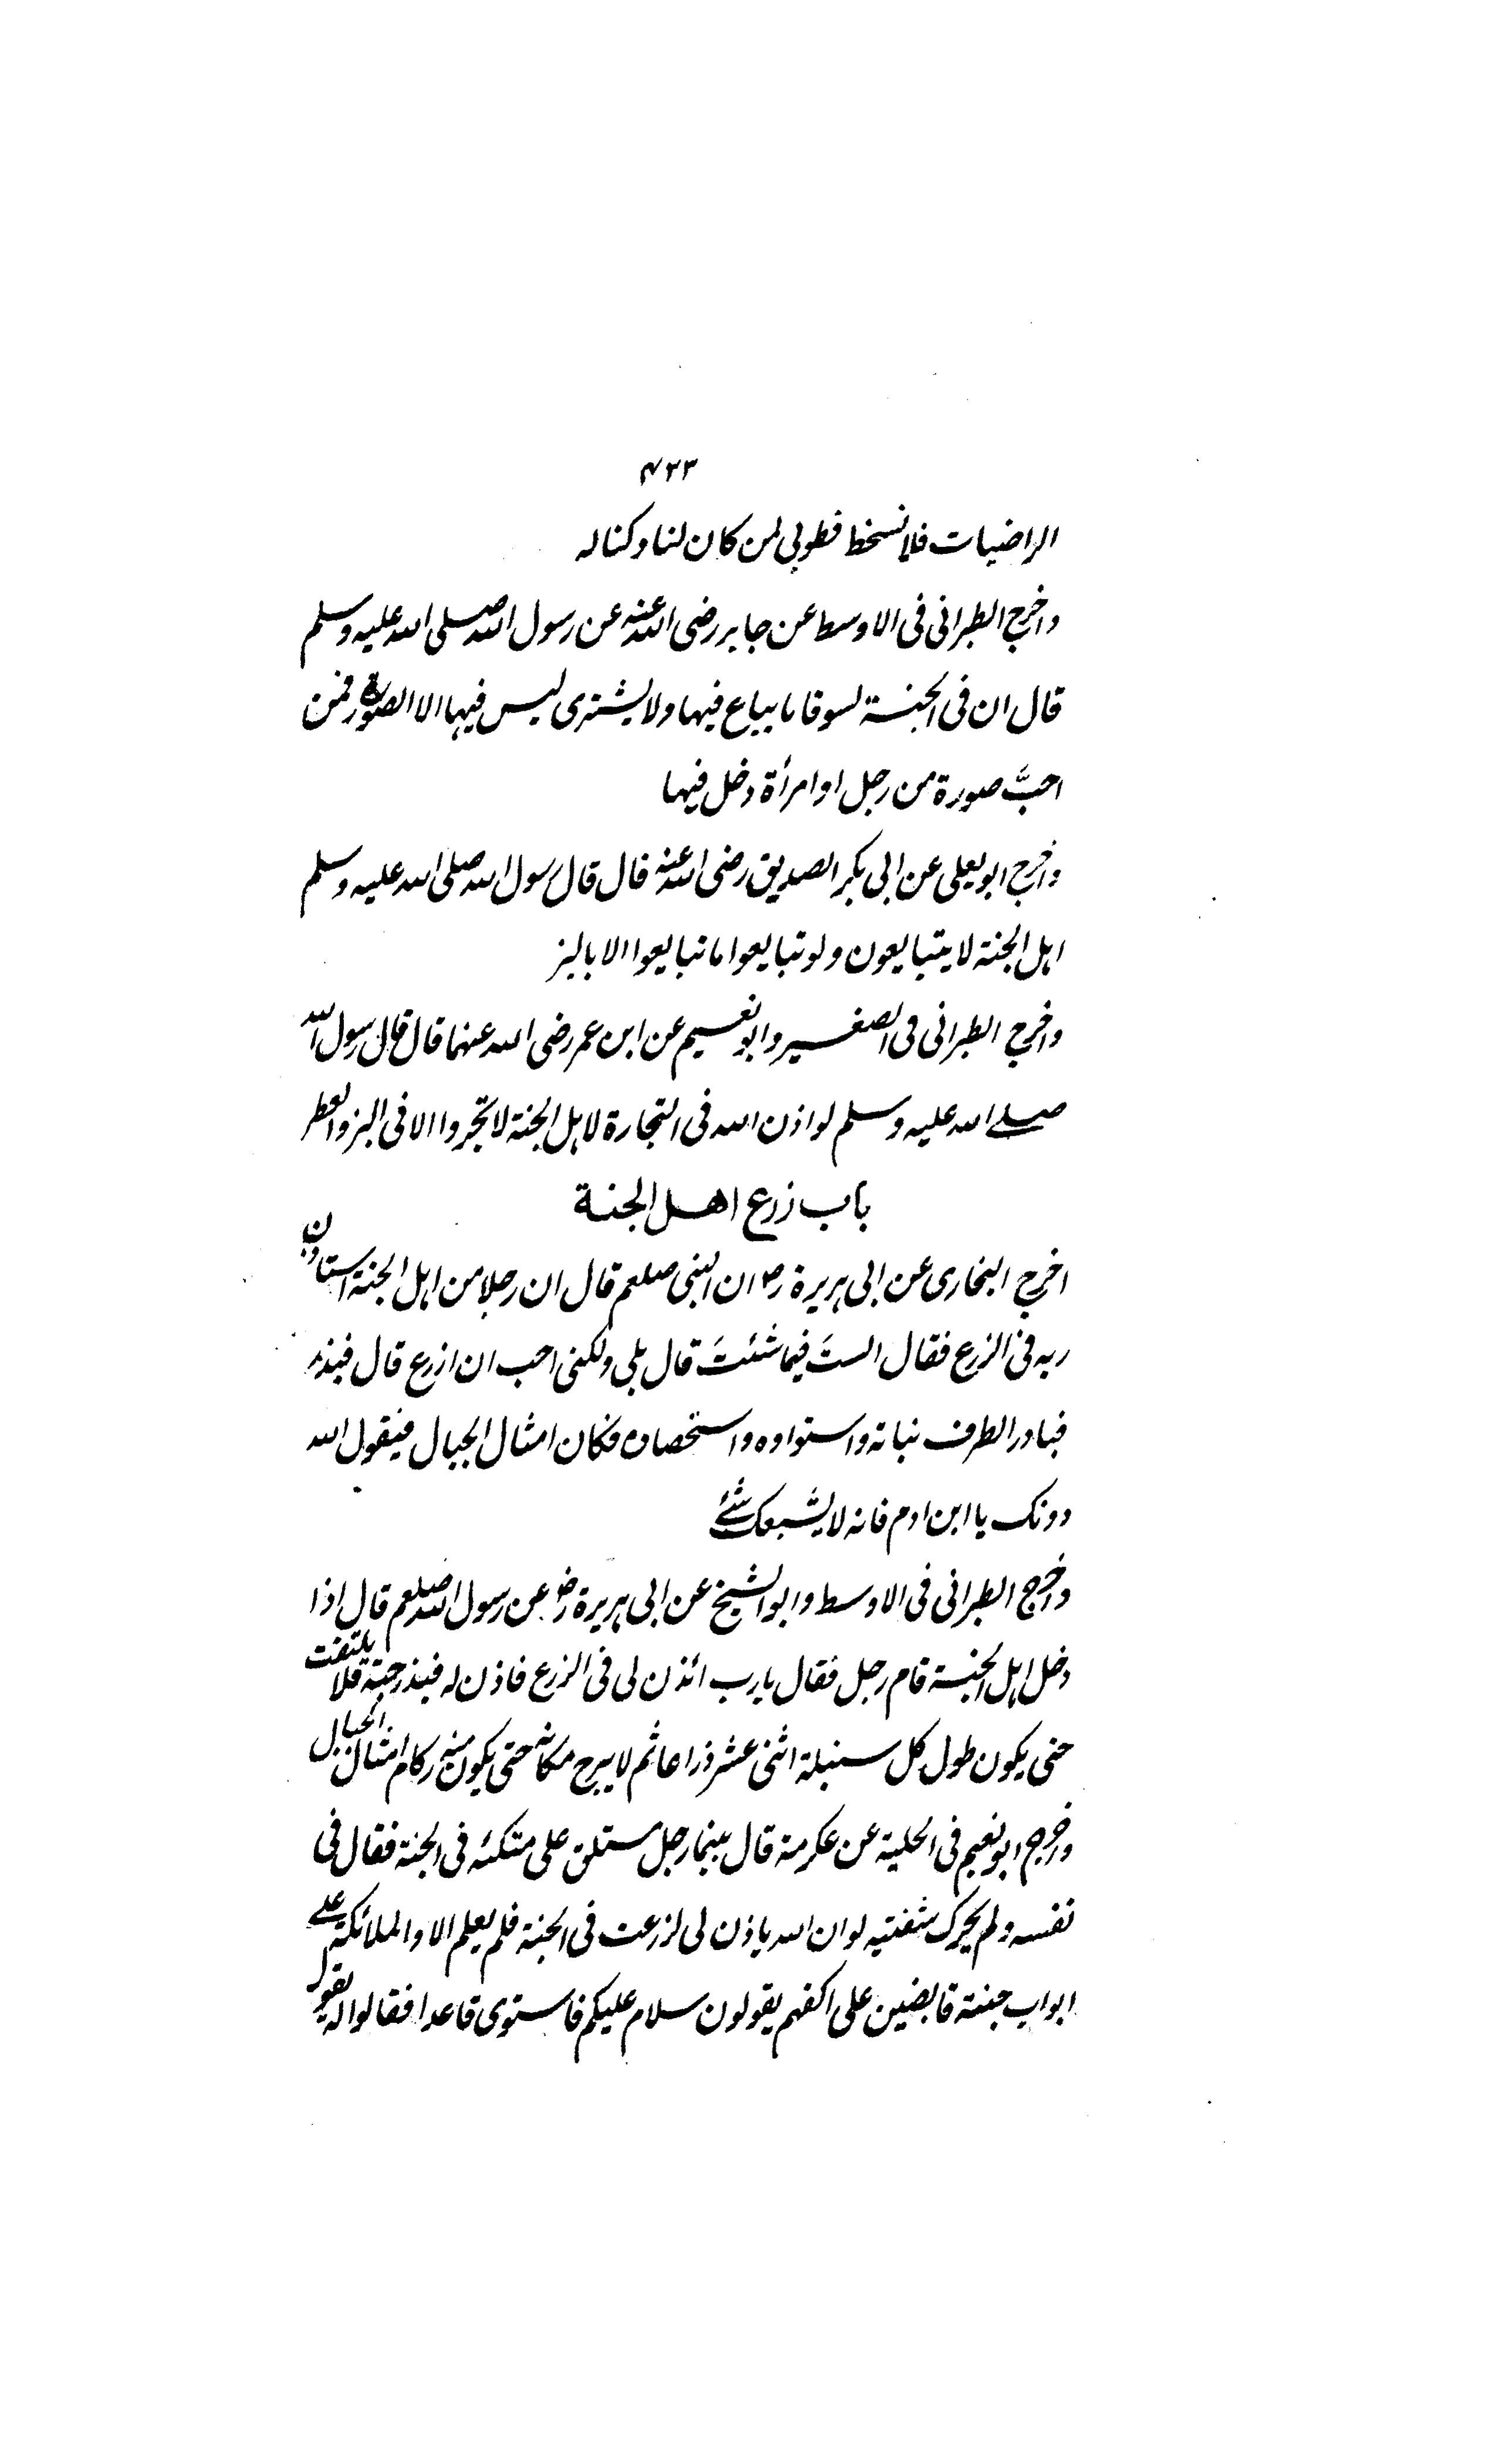 ۴۳۳
الراضيات فلا نسخط فطوبى لمن كان لنا وكنا له
واخرج الطبرانى فى الاوسط عن جابر رضى الله عنه عن رسول الله صلى الله عليه وسلم
قال ان فى الجنة لسوقا ما يباع فيها ولا يشترى ليس فيها الا الصورة فمن
احبَّ صورة من رجل او امرأة دخل فيها
واخرج ابو يعلى عن ابى بكر الصديق رضى الله عنه قال قال رسول الله صلى الله عليه وسلم
اهل الجنة لا يتبايعون ولو تبايعوا ما تبايعوا الا بالبز
واخرج الطبرانى فى الصغير وابو نعيم عن ابن عمر رضى الله عنهما قال قال رسول الله
صلے الله عليه وسلم لو اذن الله فى التجارة لاهل الجنة لاتجروا الا فى البز والعطر
باب زرع اهل الجنة
اخرج البخارى عن ابى هريرة رض ان النبى صلعم قال ان رجلا من اهل الجنة استاذن
ربه فى الزرع فقال الستَ فيما شئتَ قال بلى ولكنى احب ان ازرع قال فبذر
فبادر الطرف نباته واستواوه واستحصاده فكان امثال الجبال فيقول الله
دونك يا ابن ادم فانه لا يشبعك شئے
واخرج الطبرانى فى الاوسط وابو الشيخ عن ابى هريرة رض عن رسول الله صلعم قال اذا
دخل اهل الجنة قام رجل فقال يارب ائذن لى فى الزرع فاذن له فبذر حبة فلا يلتفت
حتى يكون طول كل سنبلة اثنى عشر ذراعا ثم لا يبرح مكانه حتى يكون منه ركام امثال الجبال
واخرج ابو نعيم فى الحلية عن عكرمة قال بينما رجل مستلق على متكئه فى الجنة فقال فى
نفسه ولم يحرك شفتيه لو ان الله ياذن لى لزرعت فى الجنة فلم يعلم الا والملائكة علے
ابواب جنته قابضين على اكفهم يقولون سلام عليكم فاستوى قاعدا فقالوا له يقول